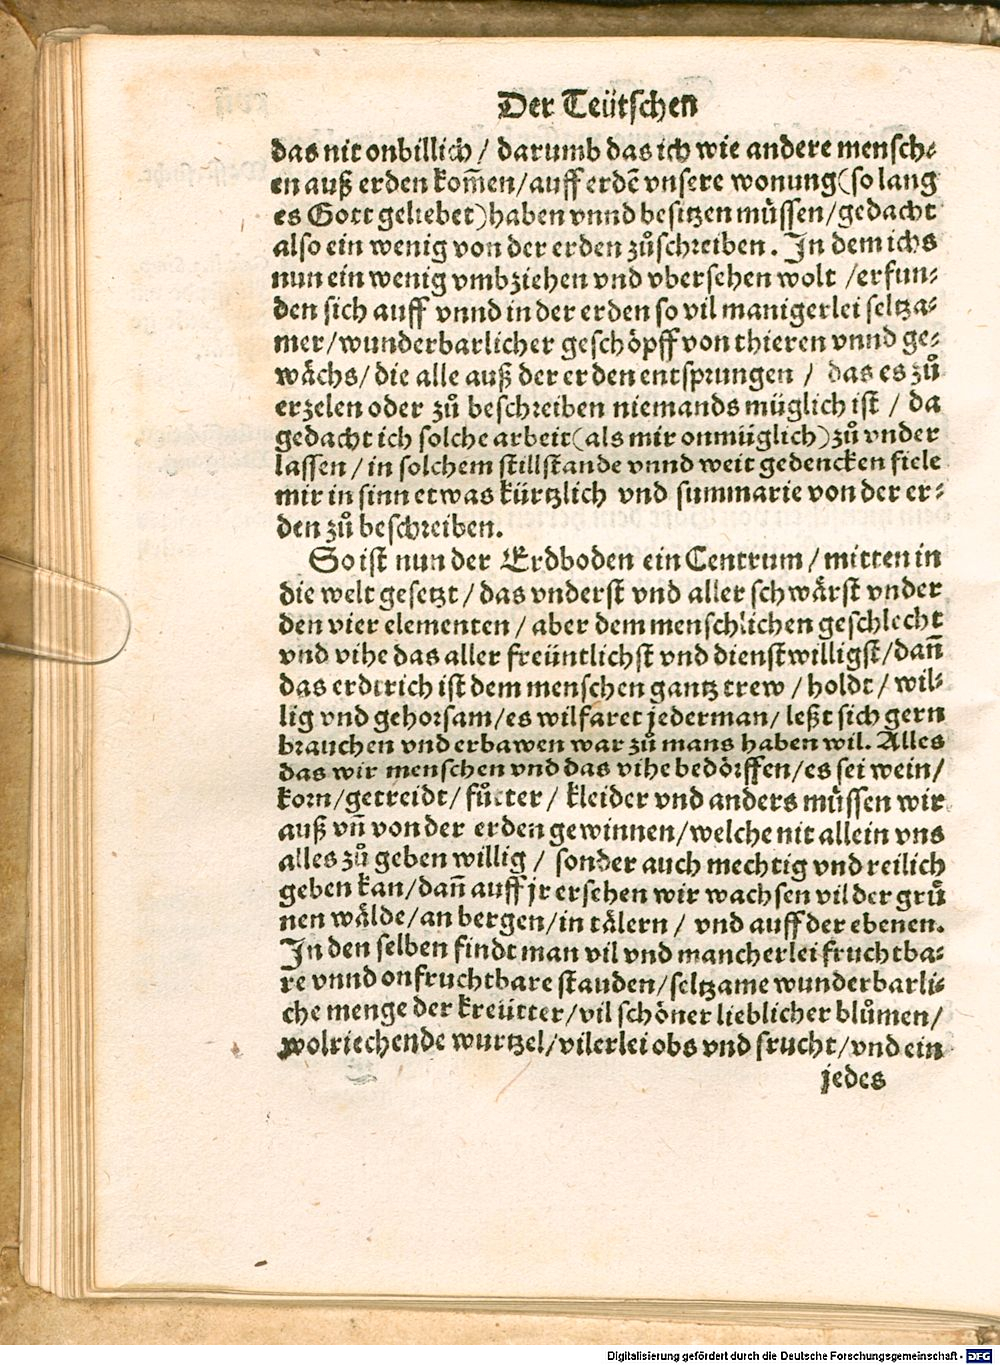 Der Teütschen
das nit onbillich / darumb das ich wie andere mensch⸗
en auß erden kom̃en/auff erdẽ vnsere wonung(so lang
es Gott geliebet)haben vnnd besitzen müssen/gedacht
also ein wenig von der erden zůschreiben. In dem ichs
nun ein wenig vmbziehen vnd vbersehen wolt /erfun⸗
den sich auff vnnd in der erden so vil manigerlei seltza⸗
mer/wunderbarlicher geschöpff von thieren vnnd ge⸗
wächs/ die alle auß der erden entsprungen / das es zů
erzelen oder zů beschreiben niemands müglich ist / da
gedacht ich solche arbeit(als mir onmüglich)zů vnder
lassen / in solchem stillstande vnnd weit gedencken fiele
mir in sinn etwas kürtzlich vnd summarie von der er⸗
den zů beschreiben.
So ist nun der Erdboden ein Centrum / mitten in
die welt gesetzt / das vnderst vnd aller schwärst vnder
den vier elementen / aber dem menschlichen geschlecht
vnd vihe das aller freüntlichst vnd dienstwilligst/dañ
das erdtrich ist dem menschen gantz trew / holdt / wil⸗
lig vnd gehorsam/es wilfaret jederman/ leßt sich gern
brauchen vnd erbawen war zů mans haben wil. Alles
das wir menschen vnd das vihe bedörffen/es sei wein/
korn/getreidt/ fůtter / kleider vnd anders müssen wir
auß vñ von der erden gewinnen/welche nit allein vns
alles zů geben willig / sonder auch mechtig vnd reilich
geben kan/dañ auff jr ersehen wir wachsen vil der grů
nen wälde/an bergen/in tälern / vnd auff der ebenen.
In den selben findt man vil vnd mancherlei fruchtba⸗
re vnnd onfruchtbare stauden/seltzame wunderbarli⸗
che menge der kreütter/vil schöner lieblicher blůmen/
wolriechende wurtzel/vilerlei obs vnd frucht/vnd ein
jedes
Digitalisierung gefördert durch die Deutsche Forschungsgemeinschaft - DFG